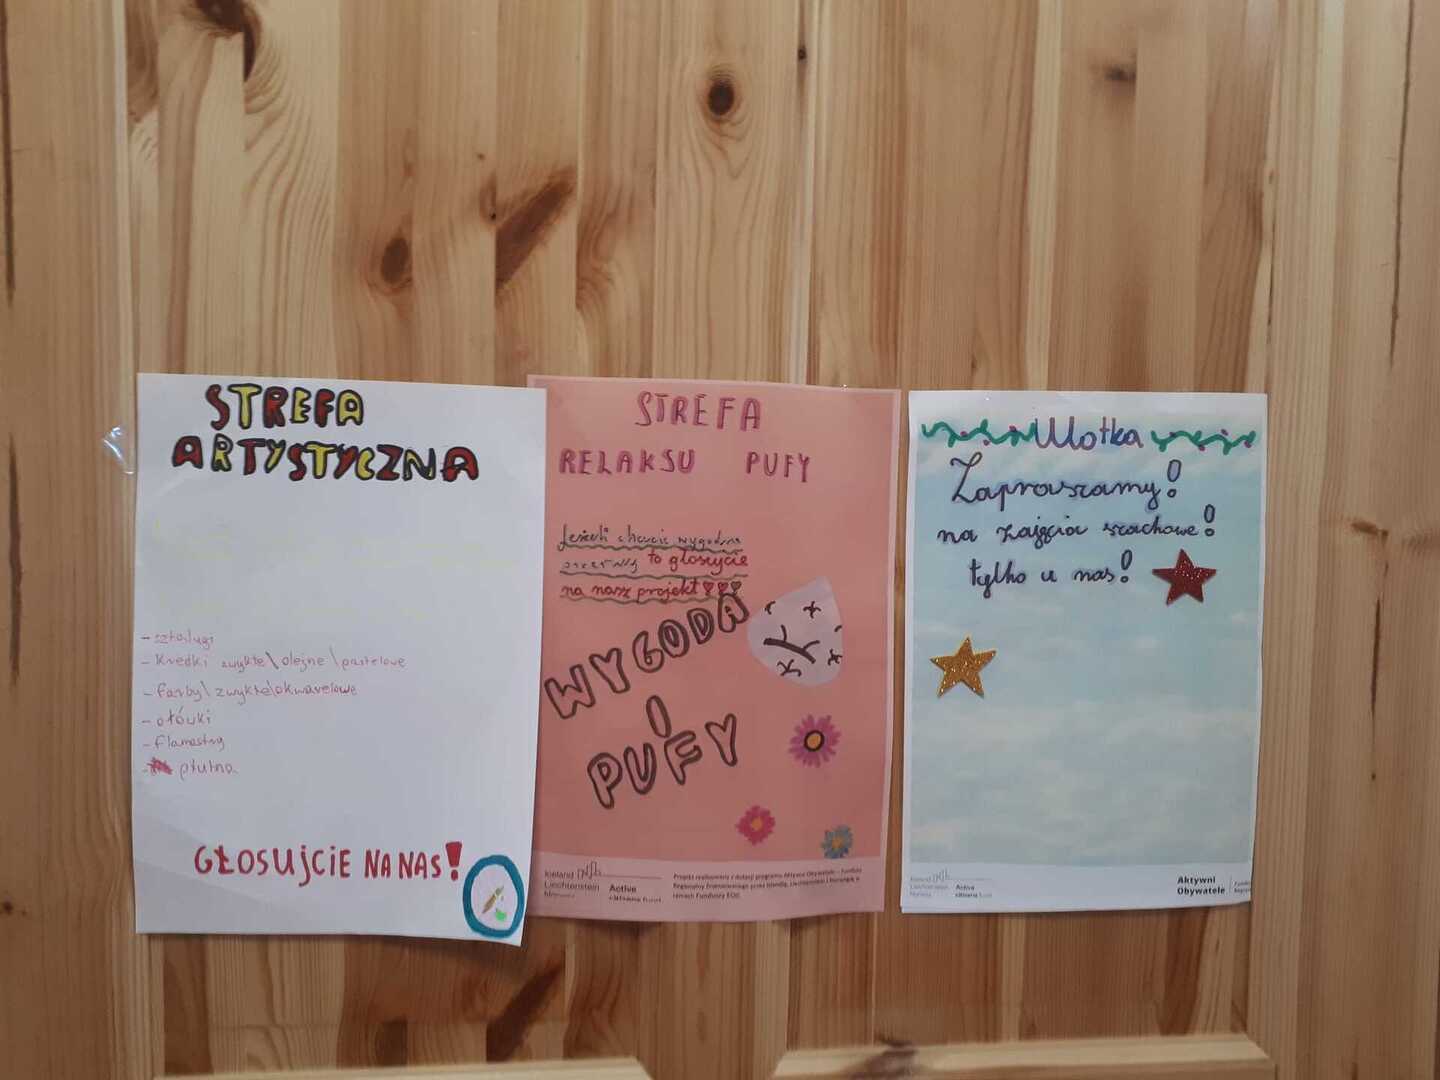 STREFA
ARTYSTYCZNA
- sztalugi
- kredki zwykłe\olejne\pastelowe
- farby\zwykłe\akwarelowe
- ołówki
- flamastry
- płutna
GŁOSUJCIE NA NAS!
STREFA
RELAKSU PUFY
Jeżeli chcecie wygodne
to głosujcie
na nasz projekt
WYGODA
I
PUFY
Iceland
Liechtenstein Active
Norway citizens fund
Projekt realizowany z dotacji programu Aktywni Obywatele – Fundusz
Regionalny finansowanego przez Islandię, Liechtenstein i Norwegię w
ramach Funduszy EOG
Ulotka
Zapraszamy!
na zajęcia szachowe!
tylko u nas!
Iceland
Liechtenstein Active
Norway citizens fund
Aktywni
Obywatele